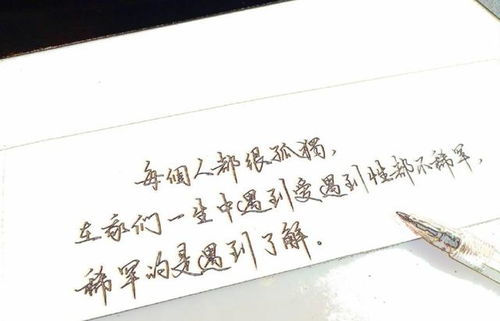 每個人都很孤獨,
在我们一生中遇到爱遇到性都不稀罕,
稀罕的是遇到了解.